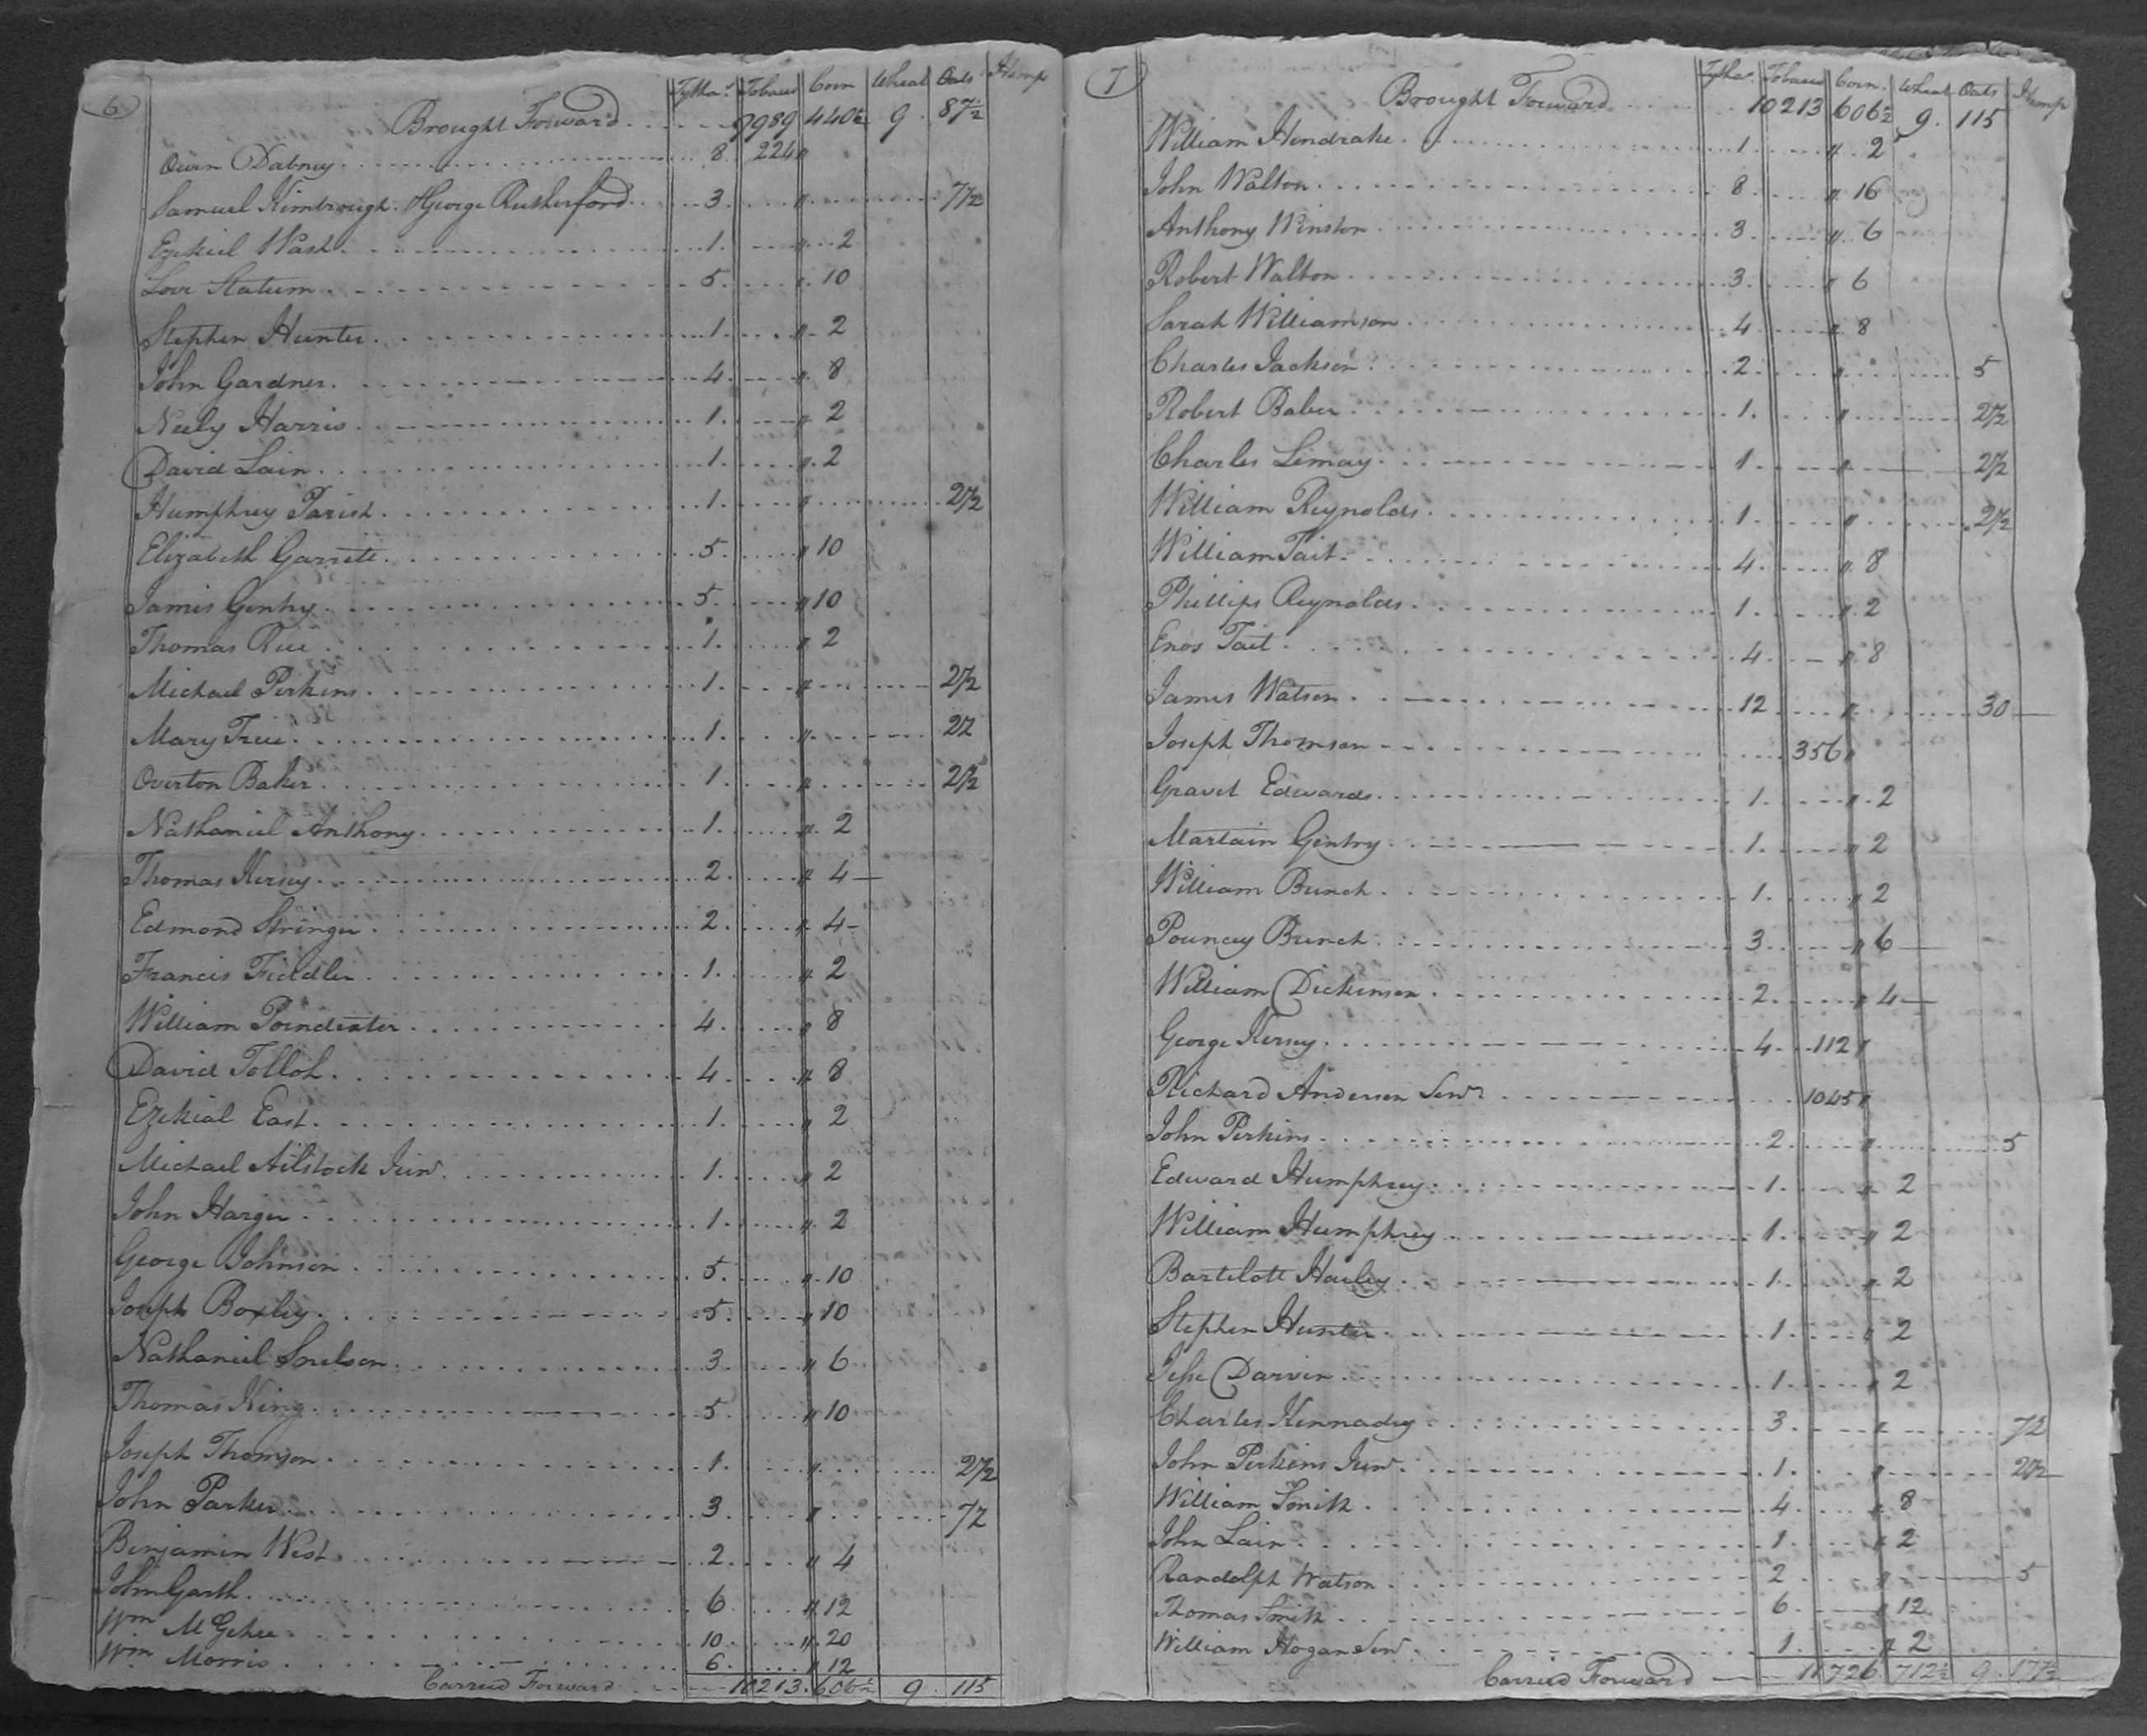 6
Tytha.s Tobacco Corn Wheat Oats Hemp
Brought Forward 9989 440½ 9 87½
Owen Dabney 8 224 "
Samuel Kimbrough &George Rutherford 3 " 7½
Ezekiel Wash 1 " 2
Love Statum 5 " 10
Stephen Hunter 1 " 2
John Gardner 4 " 8
Neely Harris 1 " 2
David Lain 1 " 2
Humphrey Parish 1 " 2½
Elizabeth Garrett 5 " 10
James Gentry 5 " 10
Thomas Rice 1 " 2
Michael Perkins 1 " 2½
Mary Trice 1 " 2½
Overton Baker 1 " 2½
Nathaniel Anthony 1 " 2
Thomas Kersey 2 " 4
Edmond Stringer 2 " 4
Francis Fieddler 1 " 2
William Poindexter 4 " 8
David Tolloh 4 " 8
Ezekial East 1 " 2
Michael Ailstock Junr 1 " 2
John Harger 1 " 2
George Johnson 5 " 10
Joseph Boxley 5 " 10
Nathaniel Snelson 3 " 6
Thomas King 5 " 10
Joseph Thomson 1 " 2½
John Parker 3 " 7½
Benjamin West 2 " 4
John Garth 6 " 12
Wm McGehee 10 " 20
Wm Morris 6 " 12
Carried Forward 10213 606½ 9 115
7
Tytha.s Tobacco Corn Wheat Oats Hemp
Brought Forward 10213 606½ 9 115
William Hendrake 1 " 2
John Walton 8 " 16
Anthony Winston 3 " 6
Robert Walton 3 " 6
Sarah Williamson 4 " 8
Charles Jackson 2 " 5
Robert Baber 1 " 2½
Charles Lemay 1 " 2½
William Reynolds 1 " 2½
William Tait 4 " 8
Phillips Reynolds 1 " 2
Enos Tait 4 " 8
James Watson 12 " 30
Joseph Thomson 356 "
Gravet Edwards 1 " 2
Martain Gentry 1 " 2
William Bunch 1 " 2
Pouncey Bunch 3 " 6
William Dickinson 2 " 4
George Kersey 4 112 "
Richard Anderson Senr 1045 "
John Perkins 2 " 5
Edward Humphrey 1 " 2
William Humphrey 1 " 2
Bartelott Hailey 1 " 2
Stephen Hunter 1 " 2
Jesse Darvin 1 " 2
Charles Kennadey 3 " 7½
John Perkins Junr 1 " 2½
William Smith 4 " 8
John Lain 1 " 2
Randolph Watson 2 " 5
Thomas Smith 6 " 12
William Hogan Senr 1 " 2
Carried Forward 11726 712½ 9 177½